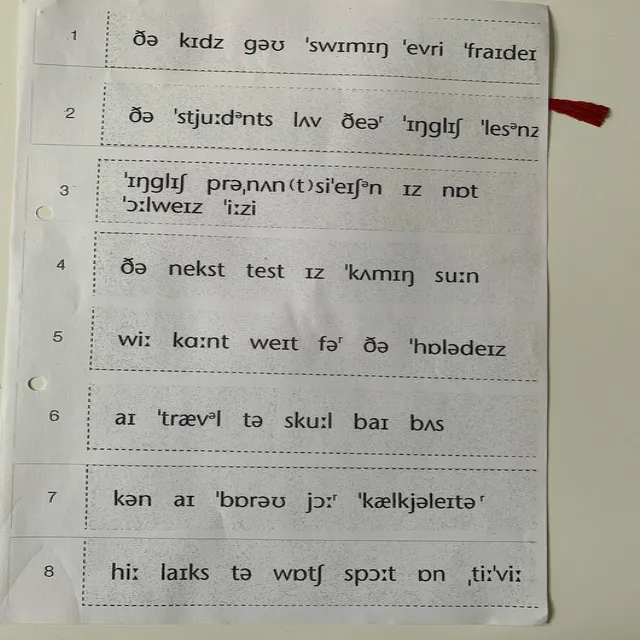 1 ðə kɪdz gəʊ ˈswɪmɪŋ ˈevri ˈfraɪdeɪ
2 ðə ˈstjuːdᵊnts lʌv ðeəʳ ˈɪŋglɪʃ ˈlesᵊnz
3 ˈɪŋglɪʃ prəˌnʌn(t)siˈeɪʃᵊn ɪz nɒt
ˈɔːlweɪz ˈiːzi
4 ðə nekst test ɪz ˈkʌmɪŋ suːn
5 wiː kɑːnt weɪt fəʳ ðə ˈhɒlədeɪz
6 aɪ ˈtrævᵊl tə skuːl baɪ bʌs
7 kən aɪ ˈbɒrəʊ jɔːʳ ˈkælkjəleɪtəʳ
8 hiː laɪks tə wɒtʃ spɔːt ɒn ˌtiːˈviː